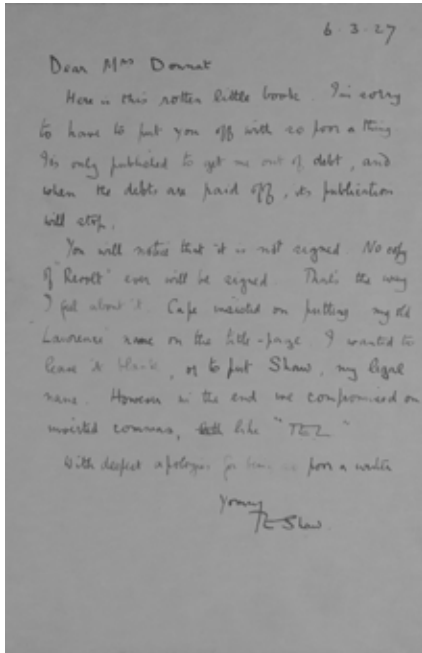 6.3.27
Dear Mrs Donnat
Here is this rotten little book. I'm sorry
to have to put you off with so poor a thing
It's only published to get me out of debt, and
when the debts are paid off, its publication
will stop.
You will notice that it is not signed. No copy
of "Revolt" ever will be signed. That's the way
I feel about it. Cape insisted on putting my old
"Lawrence" name on the title-page. I wanted to
leave it blank, or to put Shaw, my legal
name. However in the end we compromised on
inverted commas, like "TEL"
With deepest apologies for so poor a writer
Yours
TE Shaw